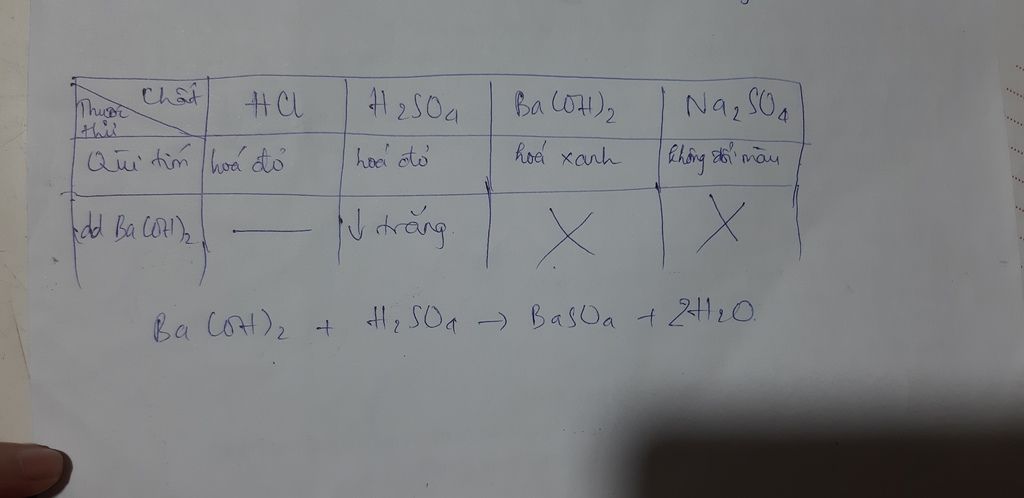 Chất HCl H2SO4 Ba(OH)2 Na2SO4
Thuốc
thử
Quì tím hoá đỏ hoá đỏ hoá xanh không đổi màu
dd Ba(OH)2 — ↓ trắng. X X
Ba(OH)2 + H2SO4 → BaSO4 + 2H2O.